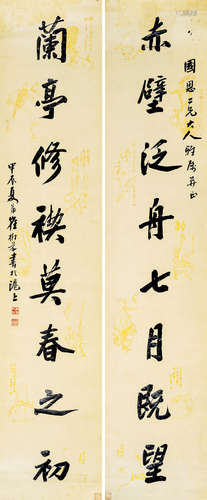 國恩二兄大人雅屬並正
赤壁泛舟七月既望
蘭亭修禊莫春之初
甲辰夏
書於滬上